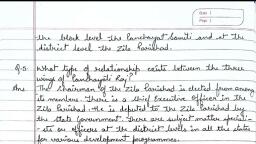 Date
Page
the block level the Panchayat Samiti and at the
district level the Zila Parishad.
Q.5. What type of relationship exists between the three
wings of Panchayati Raj?
Ans. The chairman of the Zila Parishad is elected from among
its members. There is a Chief Executive Officer in the
Zila Parishad. He is deputed to the Zila Parishad by
the State Government. There are subject matter speciali-
sts or officers at the district levels in all the states
for various development programmes.